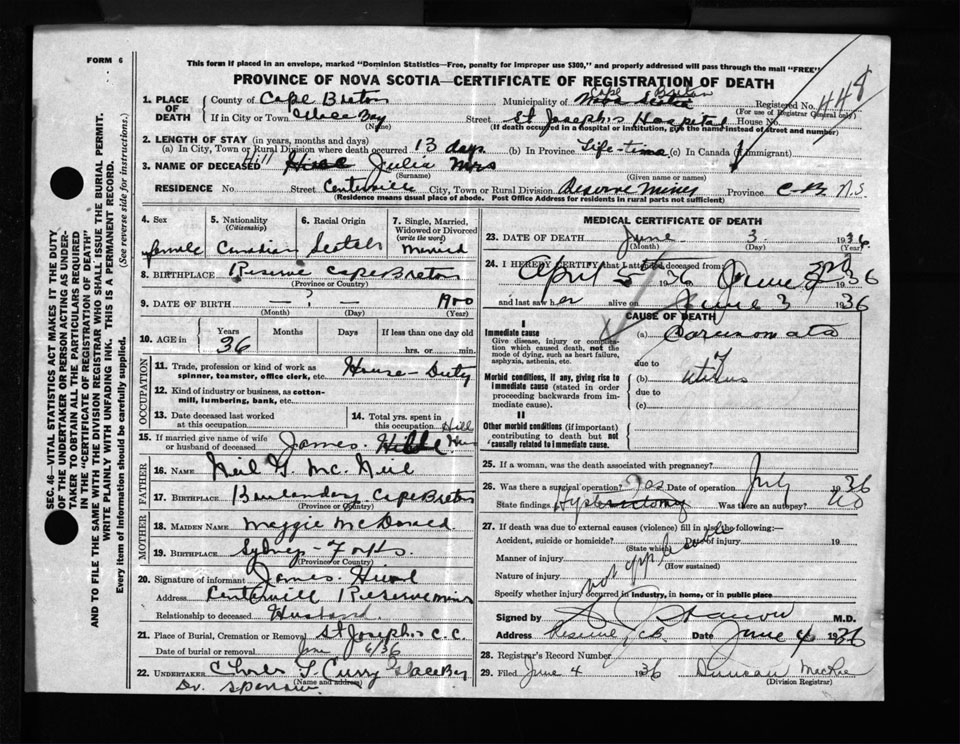 FORM 6
This form if placed in an envelope, marked "Dominion Statistics—Free, penalty for improper use $300," and properly addressed will pass through the mail "FREE"
PROVINCE OF NOVA SCOTIA—CERTIFICATE OF REGISTRATION OF DEATH
448
1. PLACE OF DEATH
County of Cape Breton
Municipality of Nova Scotia Cape Breton
Registered No.
(For use of Registrar General only)
If in City or Town Glace Bay
(Name)
Street St Joseph's Hospital House No.
(If death occurred in a hospital or institution, give the name instead of street and number)
2. LENGTH OF STAY (in years, months and days)
(a) In City, Town or Rural Division where death occurred 13 days (b) In Province Life-time (c) In Canada (if immigrant)
3. NAME OF DECEASED Hill Julia Mrs
(Surname) (Given name or names)
RESIDENCE No Street Centerville City, Town or Rural Division Reserve Mines Province C.B. N.S
(Residence means usual place of abode. Post Office Address for residents in rural parts not sufficient)
4. Sex
female
5. Nationality (Citizenship)
Canadian
6. Racial Origin
Scotch
7. Single, Married, Widowed or Divorced (write the word)
Married
8. BIRTHPLACE Reserve Cape Breton
(Province or Country)
9. DATE OF BIRTH — ? — 1900
(Month) (Day) (Year)
10. AGE in
Years Months Days If less than one day old
36 hrs. or min.
OCCUPATION
11. Trade, profession or kind of work as spinner, teamster, office clerk, etc. House-Duty
12. Kind of industry or business, as cotton-mill, lumbering, bank, etc.
13. Date deceased last worked at this occupation
14. Total yrs. spent in this occupation
15. If married give name of wife or husband of deceased James Hill
FATHER
16. NAME Neil G. Mc. Neil
17. BIRTHPLACE Cape Breton
(Province or Country)
MOTHER
18. MAIDEN NAME Maggie McDonald
19. BIRTHPLACE Sydney-Forks.
(Province or Country)
20. Signature of informant James
Address Centervill Reserve mines
Relationship to deceased Husband
21. Place of Burial, Cremation or Removal St Joseph's C.C.
Date of burial or removal June 6/36
22. UNDERTAKER Charles T. Curry Glace Bay
(Name and address)
Dr. Sparrow
MEDICAL CERTIFICATE OF DEATH
23. DATE OF DEATH June 3 1936
(Month) (Day) (Year)
24. I HEREBY CERTIFY that I attended deceased from:
April 5 1936 June 3rd 1936
and last saw her alive on June 3 1936
CAUSE OF DEATH
I
Immediate cause
Give disease, injury or complication which caused death, not the mode of dying, such as heart failure, asphyxia, asthenia, etc.
(a) Carcinomata
due to of
Morbid conditions, if any, giving rise to immediate cause (stated in order proceeding backwards from immediate cause).
(b) Uterus
due to
(c)
II
Other morbid conditions (if important) contributing to death but not causally related to immediate cause.
25. If a woman, was the death associated with pregnancy?
26. Was there a surgical operation? Yes Date of operation July 1936
State findings Hysterectomy Was there an autopsy? No
27. If death was due to external causes (violence) fill in also the following:—
Accident, suicide or homicide? Date of injury 19
(State which)
Manner of injury
(How sustained)
Nature of injury
not applicable
Specify whether injury occurred in industry, in home, or in public place
Signed by M.D.
Address Reserve C.B. Date June 4 1936
28. Registrar's Record Number
29. Filed June 4 1936 Duncan MacRae
(Division Registrar)
SEC. 46—VITAL STATISTICS ACT MAKES IT THE DUTY
OF THE UNDERTAKER OR PERSON ACTING AS UNDER-
TAKER TO OBTAIN ALL THE PARTICULARS REQUIRED
IN THE "CERTIFICATE OF REGISTRATION OF DEATH"
AND TO FILE THE SAME WITH THE DIVISION REGISTRAR WHO SHALL ISSUE THE BURIAL PERMIT.
WRITE PLAINLY WITH UNFADING INK. THIS IS A PERMANENT RECORD.
Every item of Information should be carefully supplied. (See reverse side for instructions.)